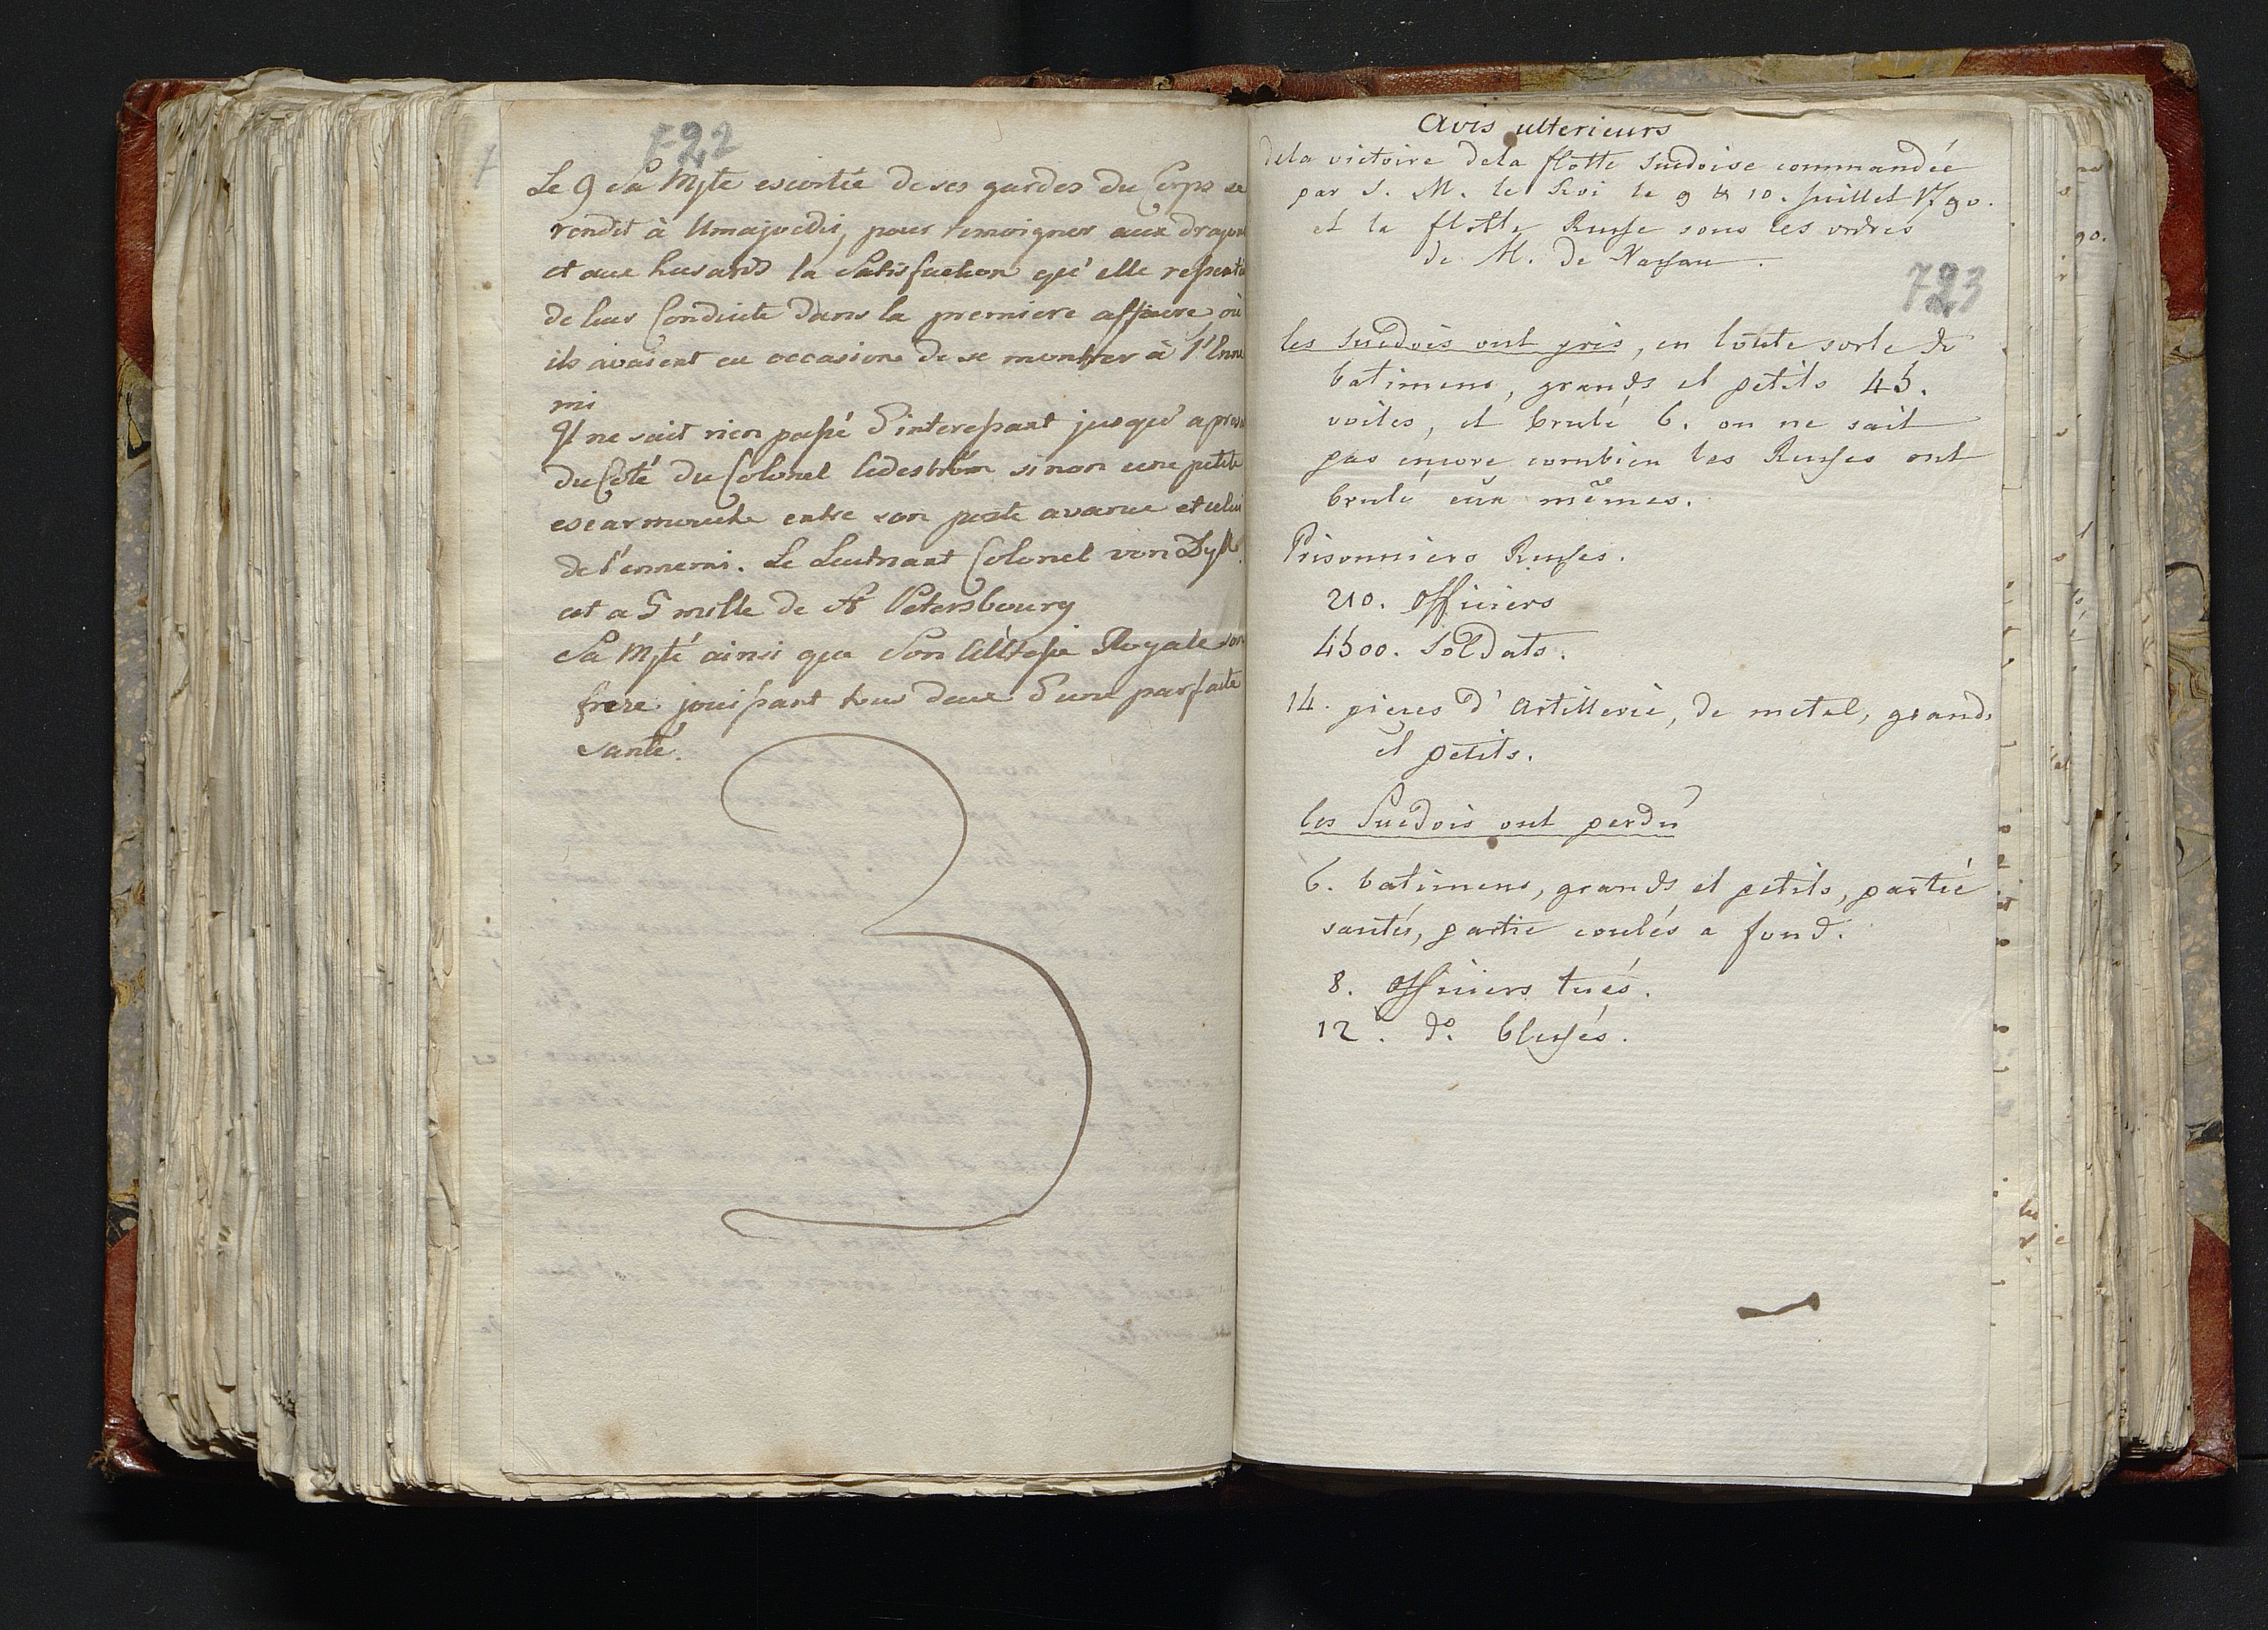 722
Le 9 Sa Mjte escortée de ses gardes du Corps se
rendit à Umajoedis, pour temoigner aux dragons
et aux husards la Satisfaction qu'elle ressentit
de leur Conduite dans la premiere affaire, où
ils avaient eu occasione de se montrer à l'Enne
mi
Il ne sait rien passé d'interessant jusqu'a present
du Coté du Colonel Cedeström sinon une petite
escarmouche entre son poste avancé et celui
de l'ennemi. Le Leutnant Colonel von
est a 5 mille de St Petersbourg
Sa Mjté ainsi que Son Alltesse Royale son
frere jouissant tous deux d'une parfaite
santé.
Avis ulterieurs
dela victoire dela flotte suedoise commandée
par S. M. le Roi le 9 & 10. Juillet 1790.
et la flotte Russe sous les ordres
de M. de Nassau.
723
les suedois ont pris, en toute sorte de
batimens, grands et petits 45.
voiles, et brulé 6. on ne sait
pas encore combien les Russes ont
brulé eux mêmes.
Prisonniers Russes.
210. Officiers
4500. Soldats.
14. pieces d'Artillerie, de metal, grands
et petits.
les Suedois ont perdu
6. batimens, grands et petits, partie
sautés, partie coulés a fond.
8. Officiers tués.
12. do. blessés.